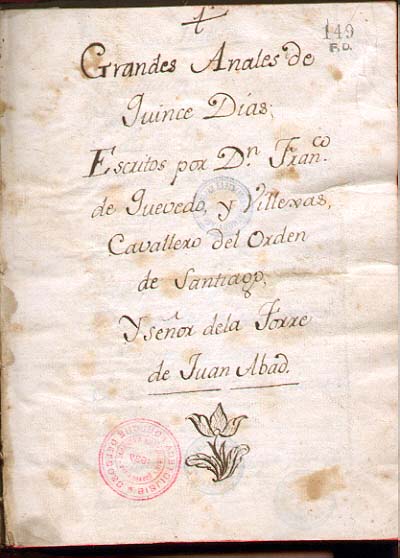 149
F.D.
Grandes Anales de
Quince Días;
Escritos por Dn. Franco.
de Quevedo, y Villexas,
Cavallero del Orden
de Santiago,
Y señor dela Torre
de Juan Abad.